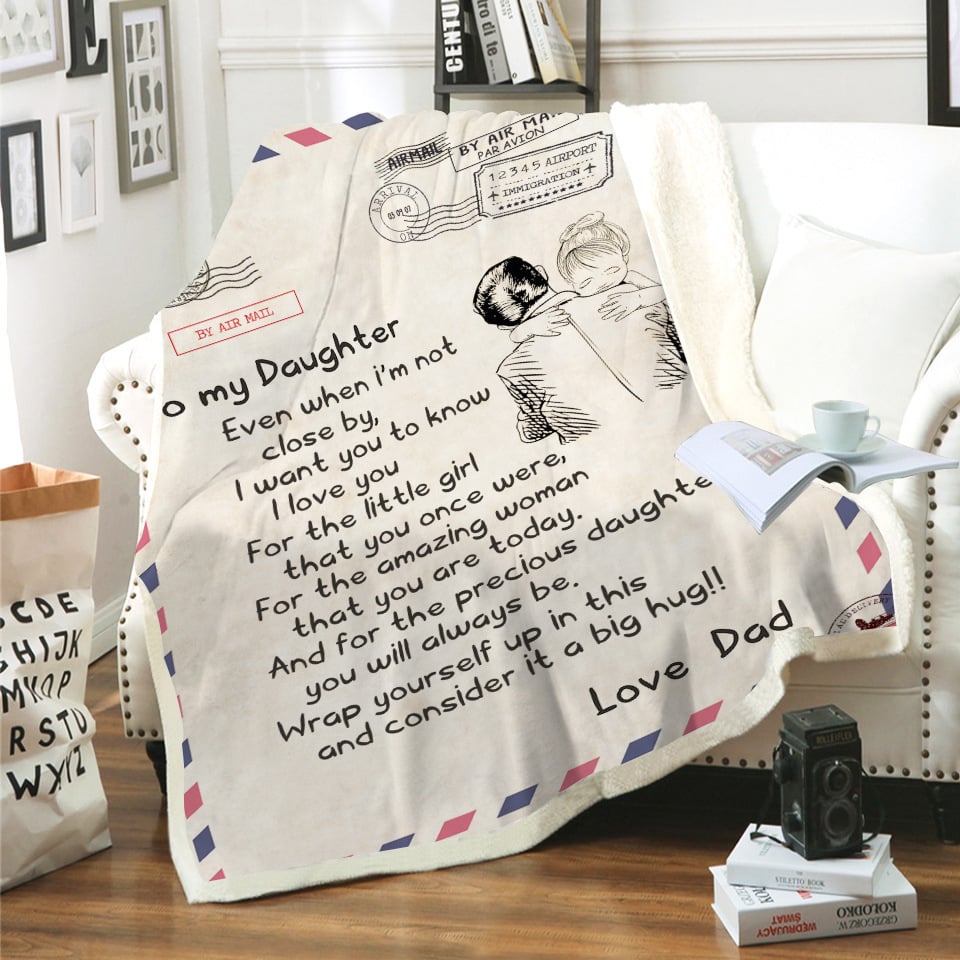 CENTU
AIRMAIL
BY AIR MA
PAR AVION
12345 AIRPORT
IMMIGRATION
ARRIVAL
BY AIR MAIL
o my Daughter
Even when i'm not
close by,
I want you to know
I love you
For the little girl
that you once were,
For the amazing woman
that you are today.
And for the precious daughte
you will always be.
Wrap yourself up in this
and consider it a big hug!!
Love Dad
E
CDE
GHIJK
MNOP
RSTU
WXYZ
ROLLEIFLEX
STILETTO BOOK
GRZEGORZ W.
KOŁODKO
WĘDRUJĄCY
ŚWIAT